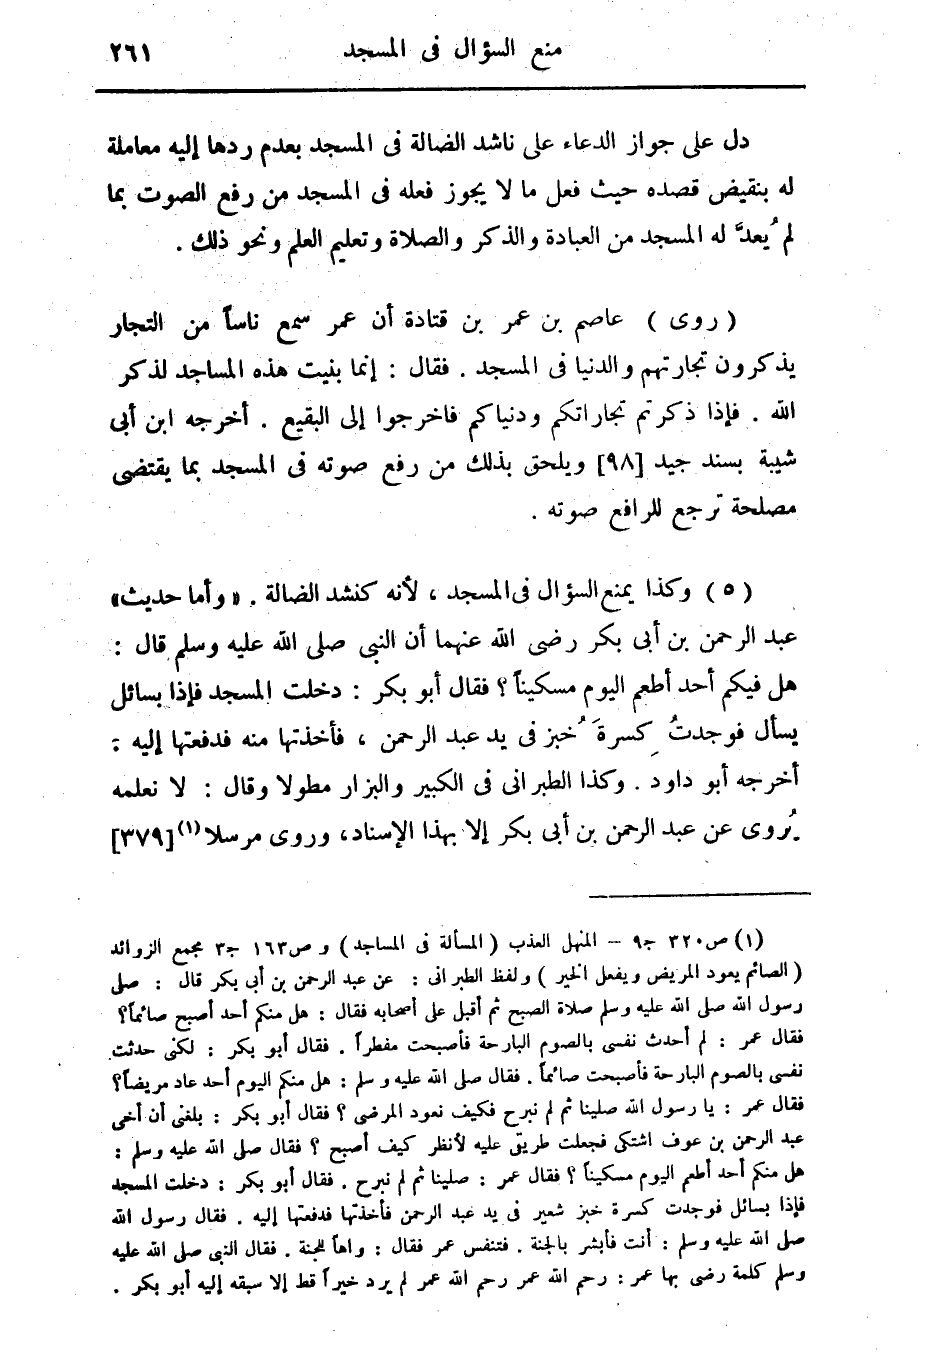 منع السؤال فى المسجد ٢٦١
دل على جواز الدعاء على ناشد الضالة فى المسجد بعدم ردها إليه معاملة
له بنقيض قصده حيث فعل ما لا يجوز فعله فى المسجد من رفع الصوت بما
لم ُيعدَّ له المسجد من العبادة والذكر والصلاة وتعليم العلم ونحو ذلك .
( روى ) عاصم بن عمر بن قتادة أن عمر سمع ناساً من التجار
يذكرون تجارتهم والدنيا فى المسجد . فقال : إنما بنيت هذه المساجد لذكر
الله . فإذا ذكرتم تجاراتكم ودنياكم فاخرجوا إلى البقيع . أخرجه ابن أبى
شيبة بسند جيد [٩٨] ويلحق بذلك من رفع صوته فى المسجد بما يقتضى
مصلحة ترجع للرافع صوته .
( ٥ ) وكذا يمنع السؤال فى المسجد ، لأنه كنشد الضالة . « وأما حديث»
عبد الرحمن بن أبى بكر رضى الله عنهما أن النبى صلى الله عليه وسلم قال :
هل فيكم أحد أطعم اليوم مسكيناً ؟ فقال أبو بكر : دخلت المسجد فإذا بسائل
يسأل فوجدتُ كِسرةَ ُخبز فى يد عبد الرحمن ، فأخذتها منه فدفعتها إليه :
أخرجه أبو داود . وكذا الطبرانى فى الكبير والبزار مطولا وقال : لا نعلمه
يُروى عن عبد الرحمن بن أبى بكر إلا بهذا الإسناد، وروى مرسلا(١)[٣٧٩]
(١) ص٣٢٠ ج٩ – المنهل العذب ( المسألة فى المساجد ) و ص١٦٣ ج٣ مجمع الزوائد
( الصائم يعود المريض ويفعل الخير ) ولفظ الطبرانى : عن عبد الرحمن بن أبى بكر قال : صلى
رسول الله صلى الله عليه وسلم صلاة الصبح ثم أقبل على أصحابه فقال : هل منكم أحد أصبح صائماً؟
فقال عمر : لم أحدث نفسى بالصوم البارحة فأصبحت مفطراً . فقال أبو بكر : لكنى حدثت
نفسى بالصوم البارحة فأصبحت صائماً . فقال صلى الله عليه وسلم : هل منكم اليوم أحد عاد مريضاً؟
فقال عمر : يا رسول الله صلينا ثم لم نبرح فكيف نعود المرضى ؟ فقال أبو بكر : بلغنى أن أخى
عبد الرحمن بن عوف اشتكى فجعلت طريقى عليه لأنظر كيف أصبح ؟ فقال صلى الله عليه وسلم :
هل منكم أحد أطعم اليوم مسكيناً ؟ فقال عمر : صلينا ثم لم نبرح . فقال أبو بكر : دخلت المسجد
فإذا بسائل فوجدت كسرة خبز شعير فى يد عبد الرحمن فأخذتها فدفعتها إليه . فقال رسول الله
صلى الله عليه وسلم : أنت فأبشر بالجنة . فتنفس عمر فقال : واهاً للجنة . فقال النبى صلى الله عليه
وسلم كلمة رضى بها عمر : رحم الله عمر رحم الله عمر لم يرد خيراً قط إلا سبقه إليه أبو بكر .